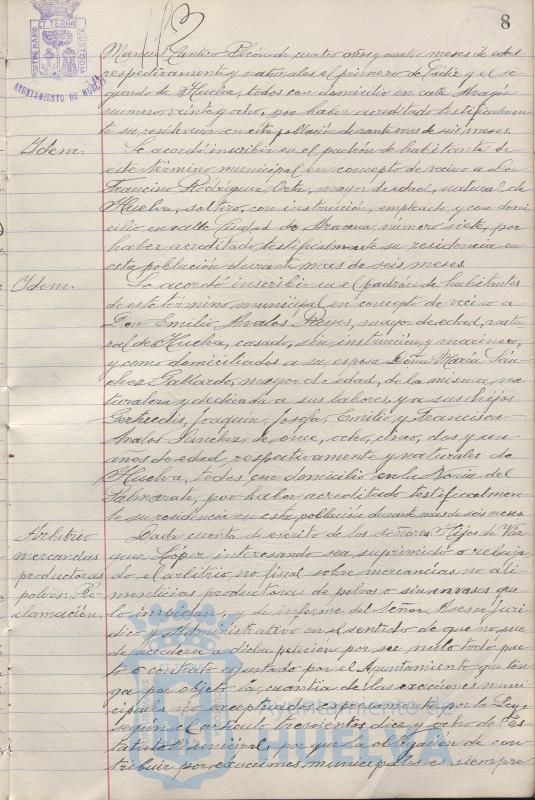 8
AYUNTAMIENTO DE HUELVA
Manuel Cantero Picón de cuatro años y cuatro meses de edad
respectivamente y naturales el primero de Cádiz y el se-
gundo de Huelva, todos con domicilio en calle Aragón
número veinte y ocho, por haber acreditado testificalmen-
te su residencia en esta población durante mas de seis meses.
Idem.
Se acordó inscribir en el padrón de habitantes de
este término municipal en concepto de vecino a Don
Francisco Rodríguez Orta, mayor de edad, natural de
Huelva, soltero, con instrucción, empleado y con domi-
cilio en calle Ciudad de Aracena número siete, por
haber acreditado testificalmente su residencia en
esta población durante mas de seis meses.
Idem.
Se acordó inscribir en el padrón de habitantes
de este término municipal en concepto de vecino a
Don Emilio Avalos Reyes, mayor de edad, natu-
ral de Huelva, casado, sin instrucción y marinero,
y como domiciliados a su esposa Doña María Sán-
chez Gallardo, mayor de edad, de la misma na-
turaleza y dedicada a sus labores, y a sus hijos
Gertrudis, Joaquín, Josefa, Emilio y Francisca
Avalos Sánchez, de once, ocho, cinco, dos y un
años de edad respectivamente y naturales de
Huelva, todos con domicilio en la Noria del
por haber acreditado testificalmen-
te su residencia en esta población durante mas de seis meses.
Arbitrio
mercancías
productoras
polvos: Re-
clamación.
Dada cuenta de escrito de los señores Hijos de Váz-
quez López interesando sea suprimido o rebaja-
do el arbitrio no fiscal sobre mercancías no ali-
menticias productoras de polvos o sin envases que
lo impidan, y de informe del Señor Asesor Jurí-
dico y Administrativo en el sentido de que no pue-
de accederse a dicha petición por ser nulo todo pac-
to o contrato ajustado por el Ayuntamiento que ten-
ga por objeto la cuantía de las exacciones muni-
cipales no exceptuadas expresamente por la Ley
según el artículo trescientos diez y ocho del Es-
tatuto Municipal, por que la obligación de con-
tribuir por exacciones municipales es siempre
Ayuntamiento de
HUELVA